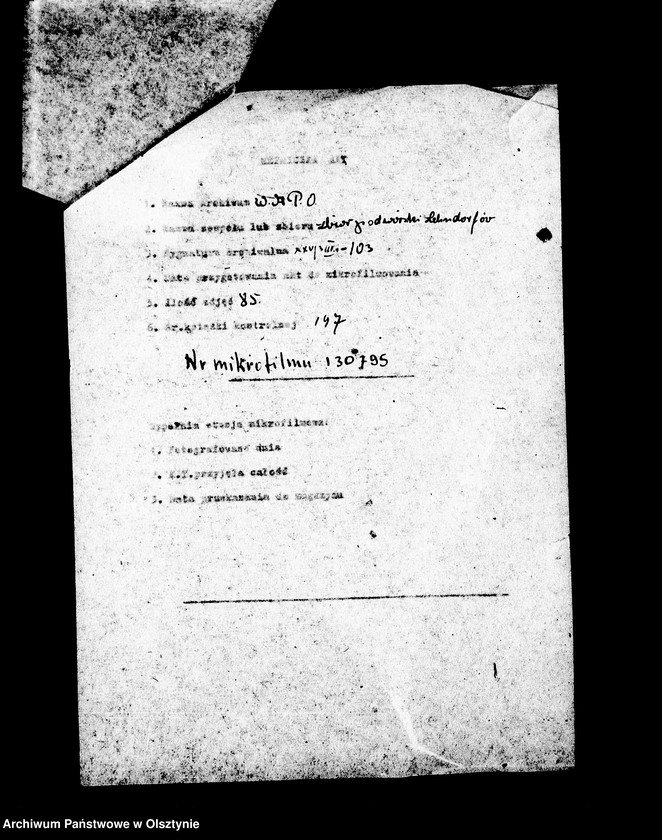 1. Nazwa archiwum W.A.P.O.
2. Nazwa zespołu lub zbioru zbiór podworski Lehndorfów
3. Sygnatura archiwalna /103
4. Data przygotowania akt do mikrofilmowania
5. Ilość zdjęć 85.
6. Nr.książki kontrolnej 147
Nr mikrofilmu 130795
Wypełnia stacja mikrofilmowa:
1. Fotografować dnia
2. K.T.przyjęła całość
3. Data przekazania do magazynu
Archiwum Państwowe w Olsztynie